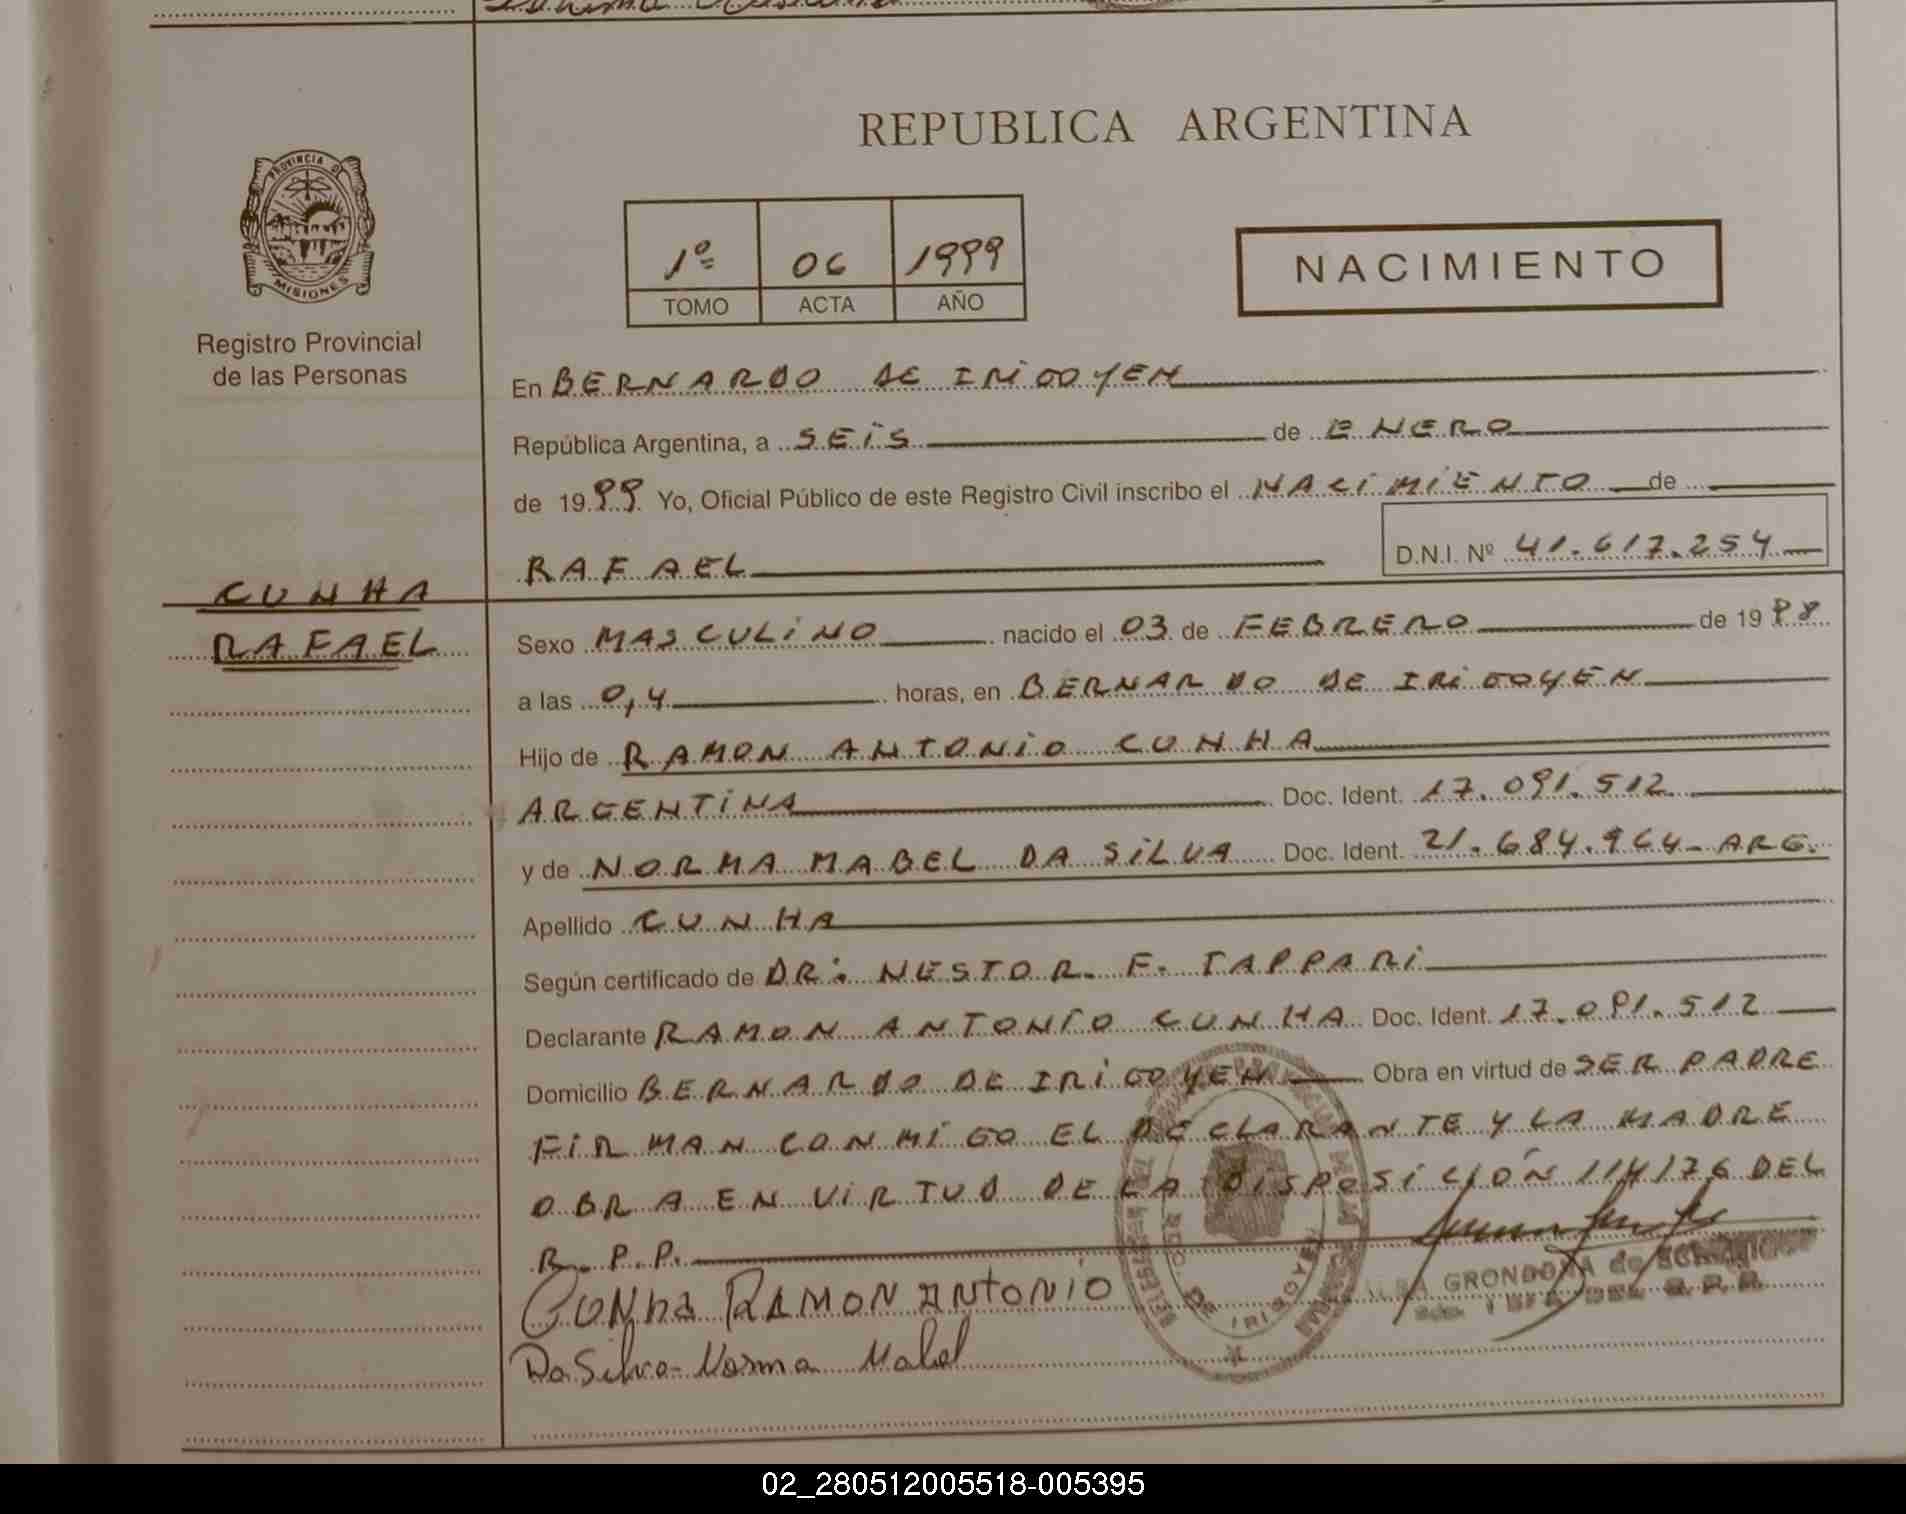 PROVINCIA DE
MISIONES
Registro Provincial
de las Personas
CUNHA
RAFAEL
REPUBLICA ARGENTINA
1º 06 1999
TOMO ACTA AÑO
NACIMIENTO
En BERNARDO DE IRIGOYEN
República Argentina, a SEIS de ENERO
de 1999 Yo, Oficial Público de este Registro Civil inscribo el NACIMIENTO de
RAFAEL D.N.I. Nº 41.617.254
Sexo MASCULINO nacido el 03 de FEBRERO de 1998
a las 0,4 horas, en BERNARDO DE IRIGOYEN
Hijo de RAMON ANTONIO CUNHA
ARGENTINA Doc. Ident. 17.091.512
y de NORMA MABEL DA SILVA Doc. Ident. 21.684.964- ARG.
Apellido CUNHA
Según certificado de DR. NESTOR. F. TAPPARI
Declarante RAMON ANTONIO CUNHA Doc. Ident. 17.091.512
Domicilio BERNARDO DE IRIGOYEN Obra en virtud de SER PADRE
FIRMAN CONMIGO EL DECLARANTE Y LA MADRE
OBRA EN VIRTUD DE LA DISPOSICIÓN 114/76 DEL
R.P.P.
CUNha RAMON ANTONIO
Da Silva- Norma Mabel
DE IRIGOYEN
GRONDONA de
DEL R.P.P.
02_280512005518-005395